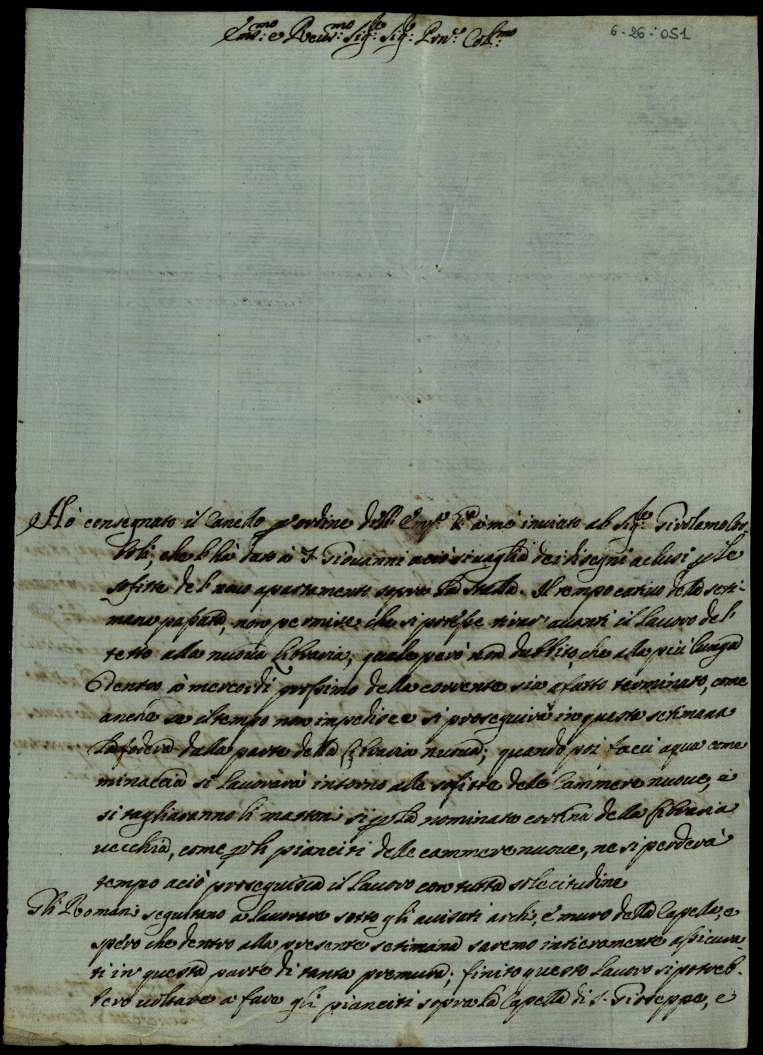 6-26-051
Em:mo e Reu:mo Sig:re Sig:re Pron:e Col:mo
Hó consegnato il Canello p ordine dell' Em:a V:a à mé inuiato al Sig:re Girolamo
che l'há dato à S. Giouanni ació si uaglia dei disegni aclusi p le
sofitte de l'nouo apartamento sopra la stalla. Il tempo catiuo della seti-
mana passata, non permise che si potesse tirar' auanti il lauoro del
tetto alla nuoua Libraria, quale però non dubbito, che alla più lunga
dentro à mercordi prossimo della corrente sia afatto terminato, come
anche se il tempo non impedisce si proseguirà in questa setimana
la fodera dalla parte della Libraria nuoua; quando poi facci aqua come
minaccia si lauorarà intorno alle sofitte dele Cammere nuoue, è
si tagliaranno li mattoni si p la nominata cortina della Libraria
uecchia, come p li pianciti delle cammere nuoue, ne si perderà
tempo ació proseguisca il lauoro con tutta solecitudine
Gli Romani seguitano à lauorare sotto gli auisati archi, é muro della Capella, e
spero che dentro alla presente setimana saremo intieramente assicura-
ti in questa parte di tanta premura; finito questo lauoro si potreb-
bero uoltare a fare gli pianciti sopra la Capella di S. Gioseppe, e